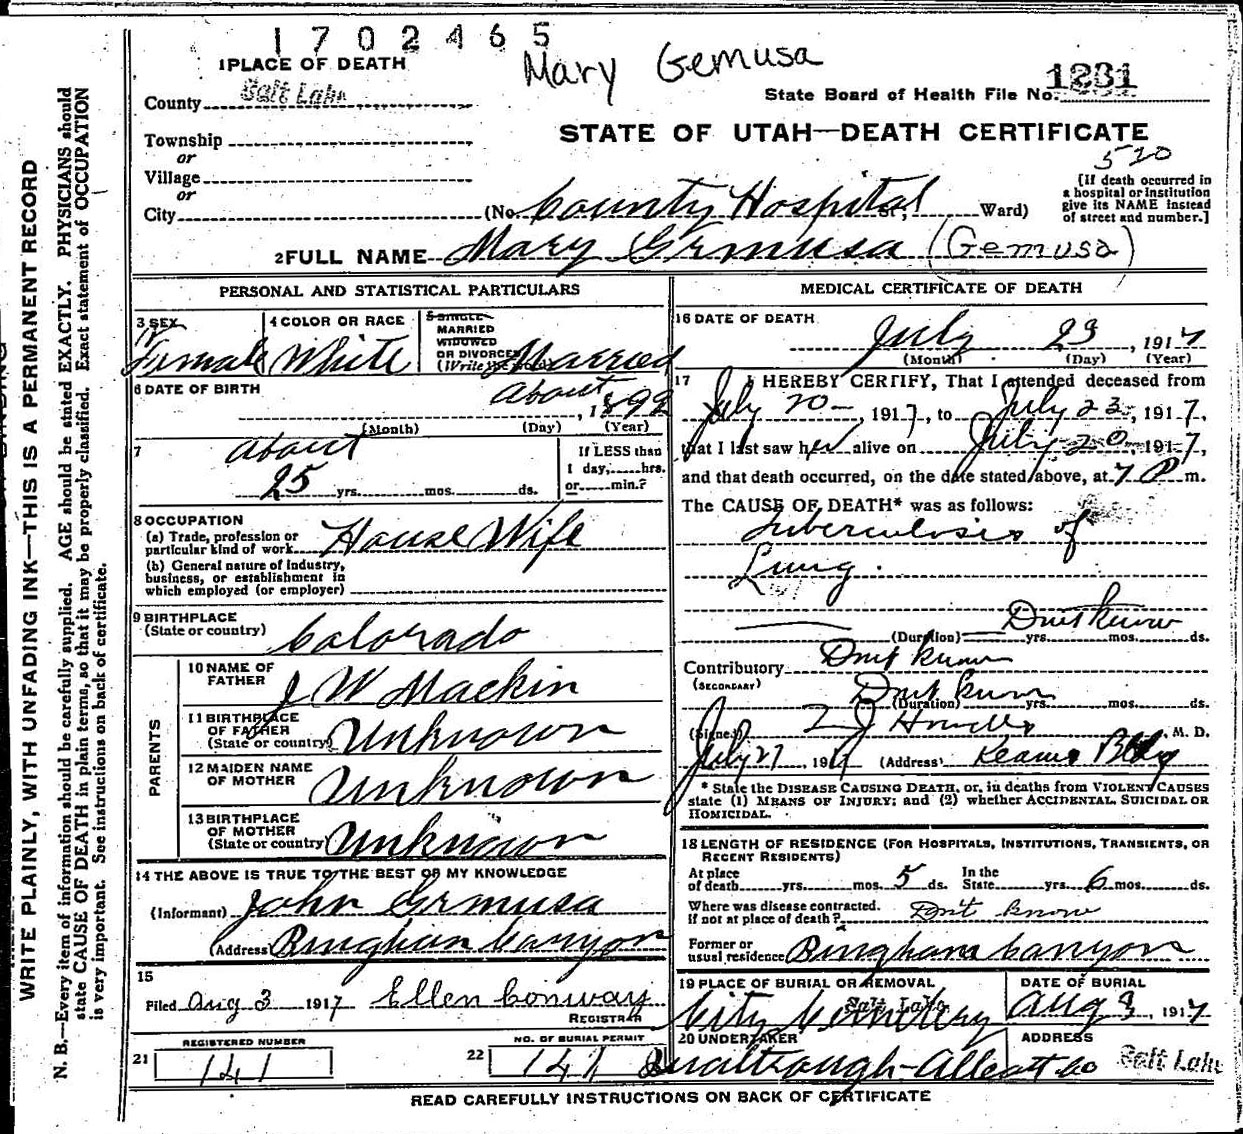 1702465
Mary Gemusa
1 PLACE OF DEATH
County Salt Lake
1231
State Board of Health File No.
Township
or
Village
or
City
STATE OF UTAH—DEATH CERTIFICATE
520
(No. County Hospital St; Ward)
[If death occurred in
a hospital or institution
give its NAME instead
of street and number.]
2 FULL NAME Mary Grmusa (Gemusa)
PERSONAL AND STATISTICAL PARTICULARS
3 SEX
Female
4 COLOR OR RACE
White
5 SINGLE
MARRIED
WIDOWED
OR DIVORCED
(Write the word)
Married
6 DATE OF BIRTH
About
, 1892
(Month) (Day) (Year)
7
about
25 yrs. mos. ds.
If LESS than
1 day, hrs.
or min.?
8 OCCUPATION
(a) Trade, profession or
particular kind of work House Wife
(b) General nature of industry,
business, or establishment in
which employed (or employer)
9 BIRTHPLACE
(State or country) Colorado
PARENTS
10 NAME OF
FATHER J W Mackin
11 BIRTHPLACE
OF FATHER
(State or country) Unknown
12 MAIDEN NAME
OF MOTHER Unknown
13 BIRTHPLACE
OF MOTHER
(State or country) Unknown
14 THE ABOVE IS TRUE TO THE BEST OF MY KNOWLEDGE
(Informant) John Grmusa
(Address) Bingham Canyon
15
Filed Aug 3 1917 Ellen Conway
REGISTRAR
REGISTERED NUMBER
21 141
NO. OF BURIAL PERMIT
22 141
MEDICAL CERTIFICATE OF DEATH
16 DATE OF DEATH
July 23, 1917
(Month) (Day) (Year)
17 I HEREBY CERTIFY, That I attended deceased from
July 20 , 1917, to July 23, 1917,
that I last saw her alive on July 20, 1917,
and that death occurred, on the date stated above, at 7 P m.
The CAUSE OF DEATH* was as follows:
Tuberculosis of
Lung.
Dont know
(Duration) yrs. mos. ds.
Contributory Dont know
(SECONDARY)
Dont know
(Duration) yrs. mos. ds.
(Signed) Howells, M. D.
July 27, 1917 (Address) Kearns Bldg
* State the DISEASE CAUSING DEATH, or, in deaths from VIOLENT CAUSES
state (1) MEANS OF INJURY; and (2) whether ACCIDENTAL, SUICIDAL OR
HOMICIDAL.
18 LENGTH OF RESIDENCE (FOR HOSPITALS, INSTITUTIONS, TRANSIENTS, OR
RECENT RESIDENTS)
At place
of death yrs. mos. 5 ds. In the
State yrs. 6 mos. ds.
Where was disease contracted.
if not at place of death? Don't know
Former or
usual residence Bingham Canyon
19 PLACE OF BURIAL OR REMOVAL
Salt Lake
City Cemetery
DATE OF BURIAL
Aug 3, 1917
20 UNDERTAKER
ADDRESS
Salt Lake
READ CAREFULLY INSTRUCTIONS ON BACK OF CERTIFICATE
WRITE PLAINLY, WITH UNFADING INK—THIS IS A PERMANENT RECORD
N. B.—Every item of information should be carefully supplied. AGE should be stated EXACTLY. PHYSICIANS should
state CAUSE OF DEATH in plain terms, so that it may be properly classified. Exact statement of OCCUPATION
is very important. See instructions on back of certificate.